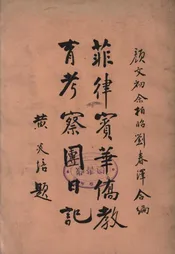 顏文初佘柏昭劉春澤合編
菲律賓華僑教
育考察團日記
黃炎培題